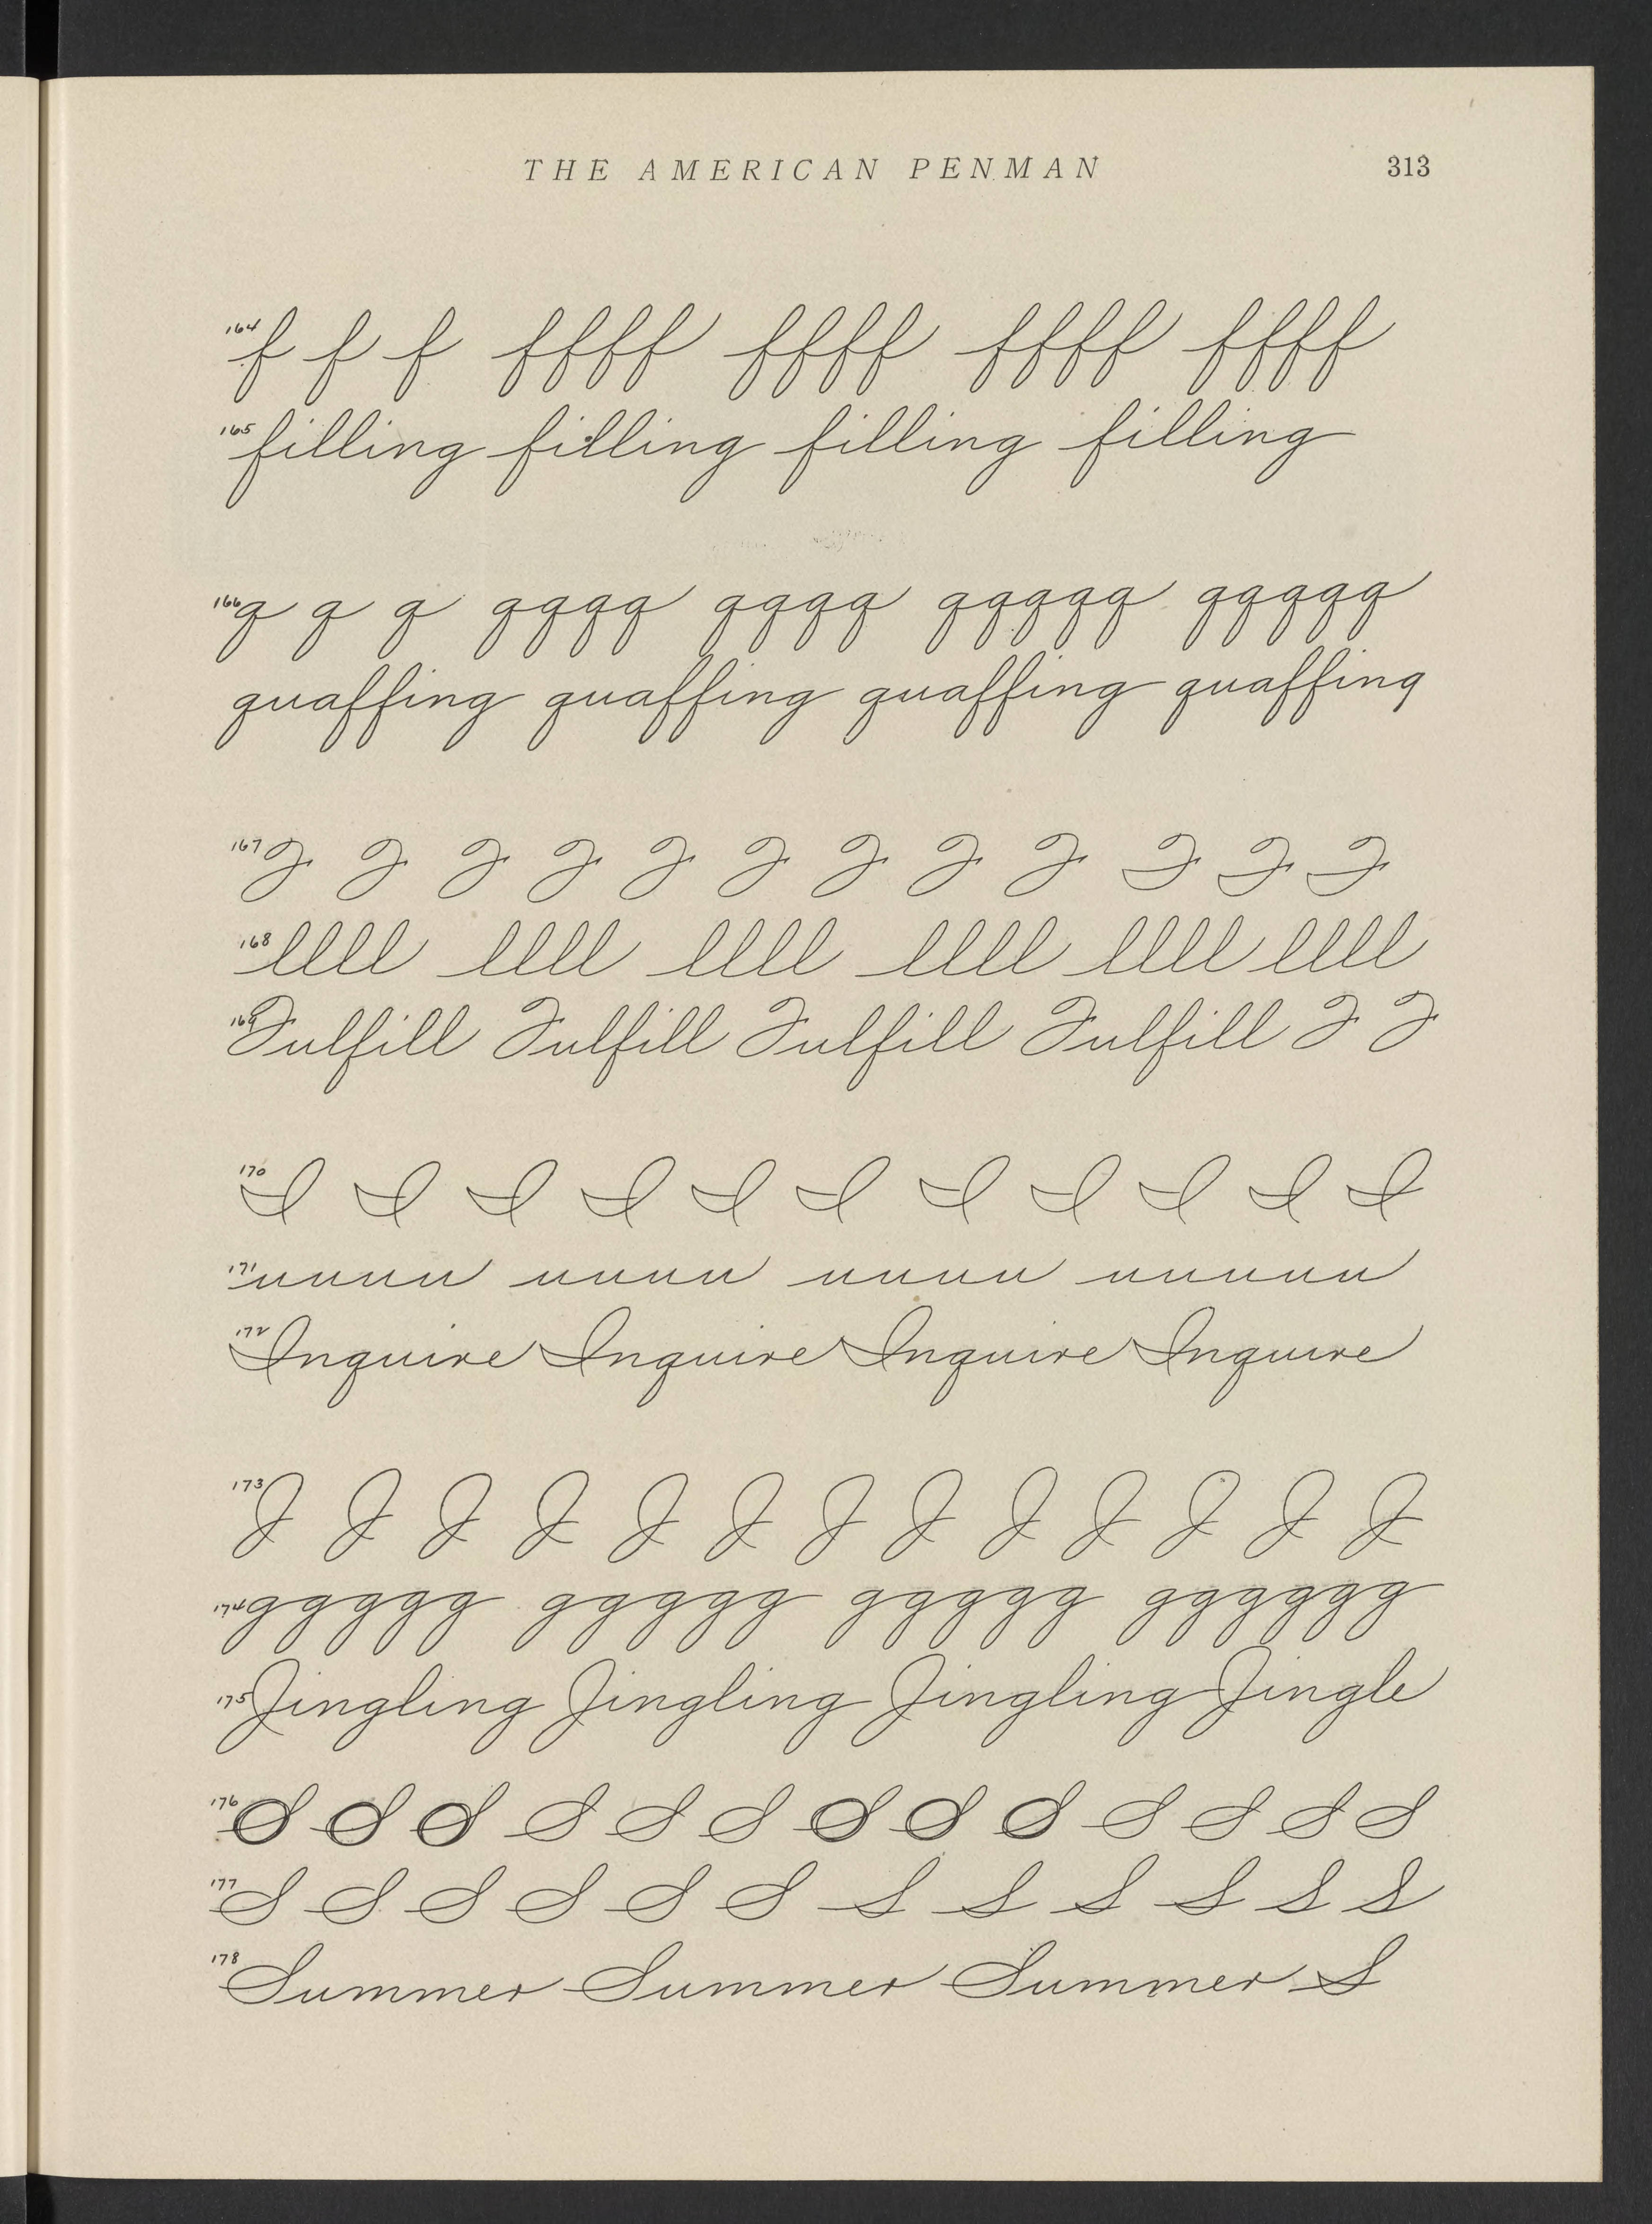 THE AMERICAN PENMAN 313
164 f f f ffff ffff ffff ffff
165 filling filling filling filling
166 q q q qqqq qqqq qqqqq qqqqq
quaffing quaffing quaffing quaffing
167 F F F F F F F F F F F F
168 llll llll llll llll llll llll
169 Fulfill Fulfill Fulfill Fulfill F F
170 I I I I I I I I I I I
171 uuuu uuuu uuuu uuuuu
172 Inquire Inquire Inquire Inquire
173 J J J J J J J J J J J J J
174 ggggg ggggg ggggg gggggg
175 Jingling Jingling Jingling Jingle
176 S S S S S S S S S S S S S
177 S S S S S S S S S S S S
178 Summer Summer Summer S